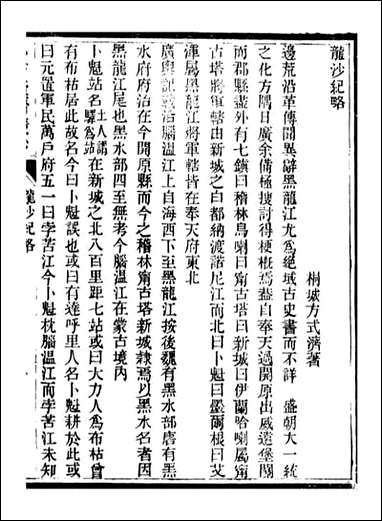 龍沙紀略
桐城方式濟著
邊荒沿革傳聞異辭黑龍江尤為絕域古史書而不詳　盛朝大一統
之化方隅日廣余備極搜討得梗概焉蓋自奉天過開原出威遠堡關
而郡縣盡外有七鎮曰稽林烏喇曰甯古塔曰新城曰伊蘭哈喇屬甯
古塔將軍轄由新城之白都納渡諾尼江而北曰卜魁曰墨爾根曰艾
渾屬黑龍江將軍轄皆在奉天府東北
廣輿記或治腦溫江上自海西下至黑龍江按後魏有黑水部唐有黑
水府府治在今開原縣而今之稽林甯古塔新城隸焉以黑水名者因
黑龍江尾也黑水部四至無考今腦溫江在蒙古境內
卜魁站名土人謂驛為站在新城之北八百里距七站或曰大力人為布枯曾
有布枯居此故名今曰卜魁誤也或曰有達呼里人名卜魁耕於此或
曰元置軍民萬戶府五一曰孛苦江今卜魁枕腦溫江而孛苦江未知
龍沙紀略